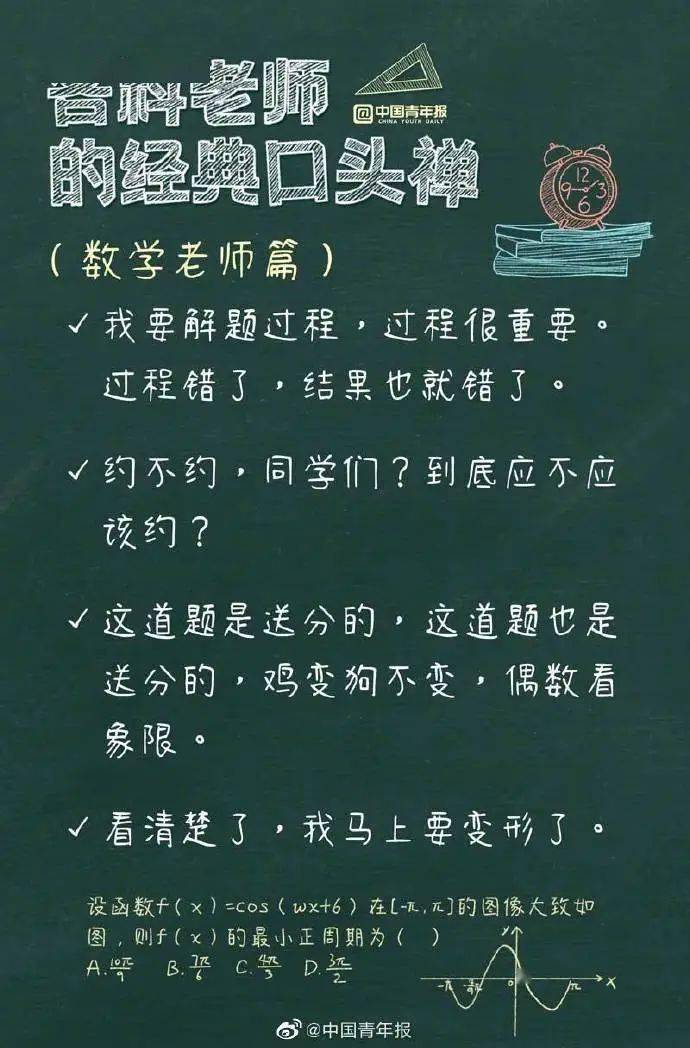 各科老师
@中国青年报
CHINA YOUTH DAILY
的经典口头禅
12
9 3
6
(数学老师篇)
✓我要解题过程，过程很重要。
过程错了，结果也就错了。
✓约不约，同学们？到底应不应
该约？
✓这道题是送分的，这道题也是
送分的，鸡变狗不变，偶数看
象限。
✓看清楚了，我马上要变形了。
设函数f(x)=cos(wx+6)在[-π,π]的图像大致如
图，则f(x)的最小正周期为( )
A.10π/9 B.7π/6 C.4π/3 D.3π/2
y
-π 0 π x
@中国青年报